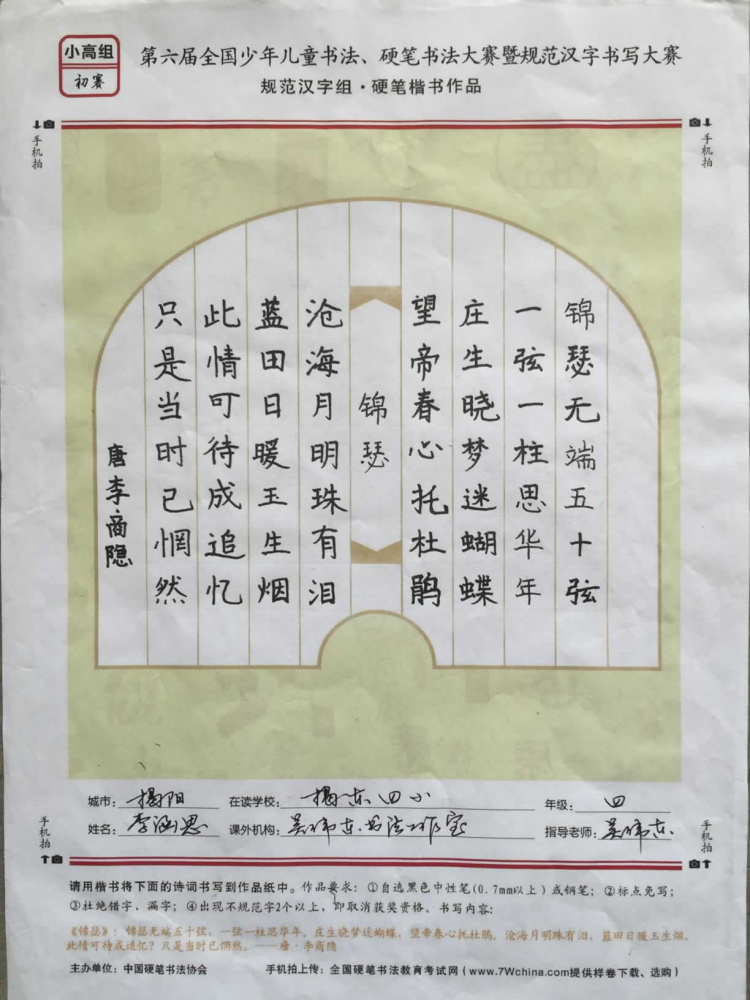 小高组
初赛
第六届全国少年儿童书法、硬笔书法大赛暨规范汉字书写大赛
规范汉字组·硬笔楷书作品
手机拍
手机拍
锦瑟无端五十弦
一弦一柱思华年
庄生晓梦迷蝴蝶
望帝春心托杜鹃
锦瑟
沧海月明珠有泪
蓝田日暖玉生烟
此情可待成追忆
只是当时已惘然
唐李商隐
城市：揭阳 在读学校：揭东四小 年级：四
姓名：李涵思 课外机构：吴伟东书法工作室 指导老师：吴伟东
手机拍
手机拍
请用楷书将下面的诗词书写到作品纸中。作品要求：①自选黑色中性笔(0.7mm以上)或钢笔；②标点免写；
③杜绝错字、漏字；④出现不规范字2个以上，即取消获奖资格。书写内容：
《锦瑟》：锦瑟无端五十弦，一弦一柱思华年。庄生晓梦迷蝴蝶，望帝春心托杜鹃。沧海月明珠有泪，蓝田日暖玉生烟。
此情可待成追忆？只是当时已惘然。——唐·李商隐
主办单位：中国硬笔书法协会 手机拍上传：全国硬笔书法教育考试网（www.7Wchina.com提供样卷下载、选购）